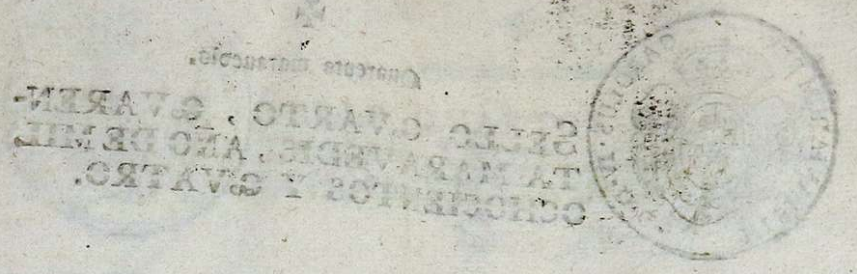 Quarenta marauedis.
SELLO QVARTO, QVAREN-
TA MARAVEDIS, AÑO DE MIL
OCHOCIENTOS Y QVATRO.
CAROLUS IV D G